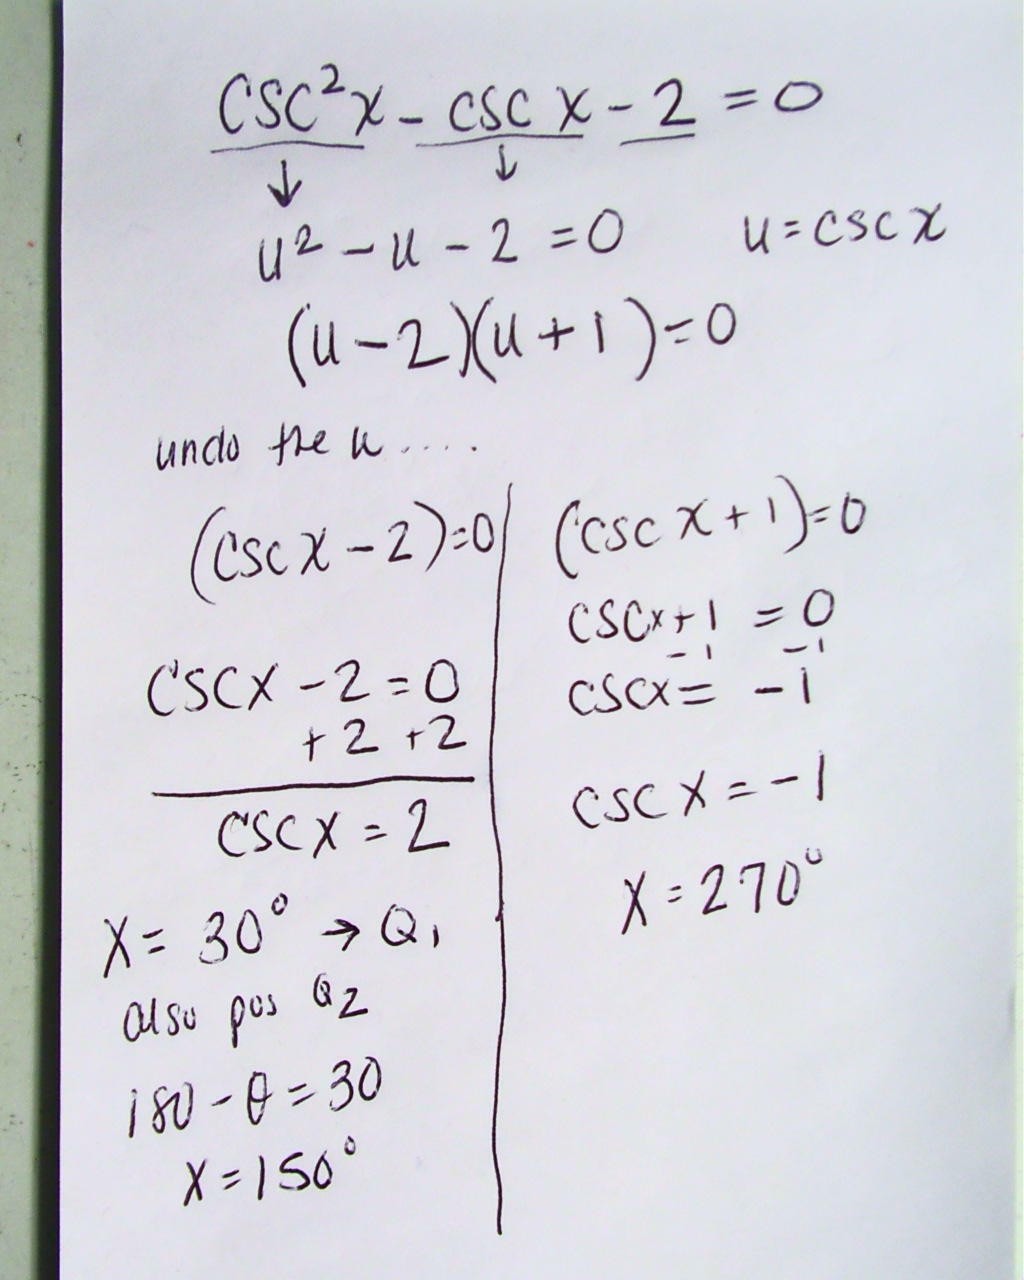 csc²x - csc x - 2 = 0
↓ ↓
u² - u - 2 = 0 u = csc x
(u - 2)(u + 1) = 0
undo the u ....
(csc x - 2) = 0
csc x - 2 = 0
+ 2 + 2
csc x = 2
x = 30° → Q1
also pos Q2
180 - θ = 30
x = 150°
(csc x + 1) = 0
csc x + 1 = 0
- 1 - 1
csc x = - 1
csc x = - 1
x = 270°